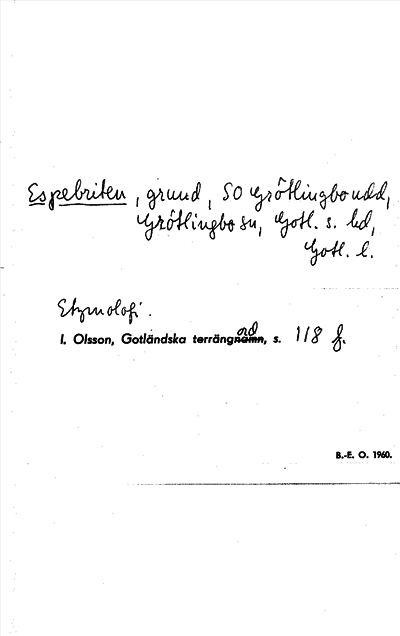 Espebriten, grund, SO Grötlingboudd,
Grötlingbo sn, Gotl. s. hd,
Gotl. l.
Etymologi.
I. Olsson, Gotländska terrängord, s. 118 f.
B.-E. O. 1960.